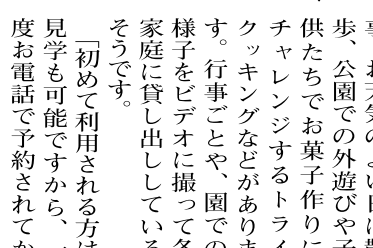 事、お天気のよい日は散
歩、公園での外遊びや子
供たちでお菓子作りに
チャレンジするトライ
クッキングなどがありま
す。行事ごとや、園での
様子をビデオに撮って各
家庭に貸し出ししている
そうです。
「初めて利用される方は
見学も可能ですから、
度お電話で予約されてか